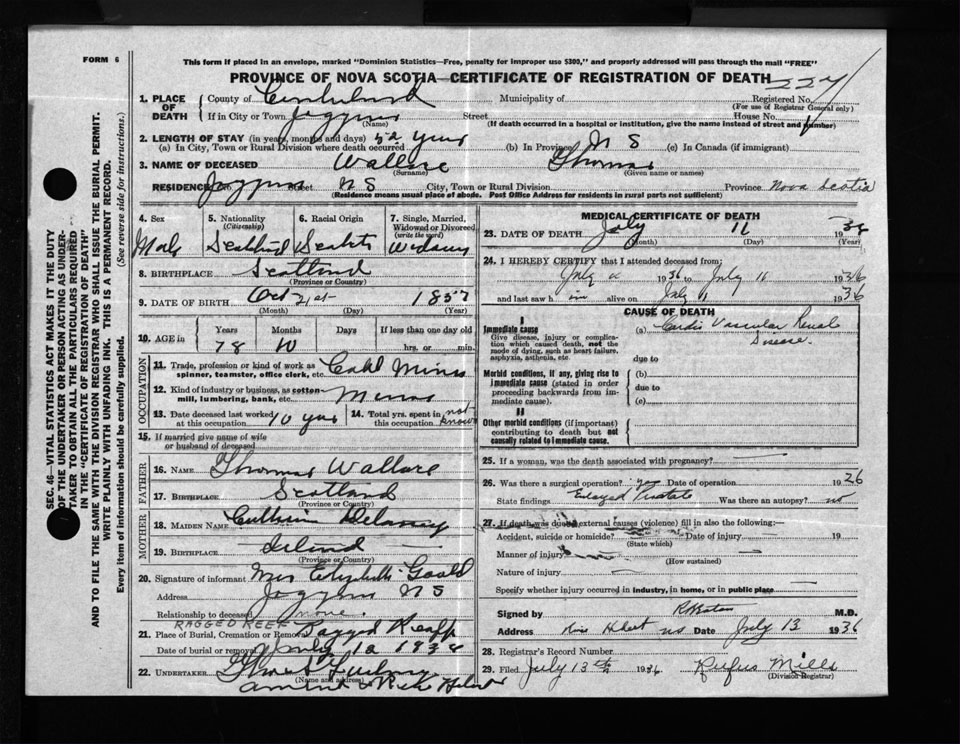 FORM 6
This form if placed in an envelope, marked "Dominion Statistics—Free, penalty for improper use $300," and properly addressed will pass through the mail "FREE"
PROVINCE OF NOVA SCOTIA—CERTIFICATE OF REGISTRATION OF DEATH
227
1. PLACE OF DEATH
County of Municipality of Registered No.
(For use of Registrar General only)
If in City or Town Joggins Street House No.
(Name) (If death occurred in a hospital or institution, give the name instead of street and number)
2. LENGTH OF STAY (in years, months and days)
(a) In City, Town or Rural Division where death occurred 52 years (b) In Province N S (c) In Canada (if immigrant)
3. NAME OF DECEASED Wallace Thomas
(Surname) (Given name or names)
RESIDENCE No. Joggins Street N S City, Town or Rural Division Province Nova Scotia
(Residence means usual place of abode. Post Office Address for residents in rural parts not sufficient)
4. Sex 5. Nationality 6. Racial Origin 7. Single, Married, Widowed or Divorced
(Citizenship) (write the word)
Male
8. BIRTHPLACE Scotland
(Province or Country)
9. DATE OF BIRTH Oct 21st 1857
(Month) (Day) (Year)
10. AGE in Years Months Days If less than one day old
78 hrs. or min.
OCCUPATION
11. Trade, profession or kind of work as spinner, teamster, office clerk, etc.
12. Kind of industry or business, as cotton-mill, lumbering, bank, etc.
13. Date deceased last worked at this occupation 10 years 14. Total yrs. spent in this occupation not known
15. If married give name of wife or husband of deceased
FATHER
16. NAME Thomas Wallace
17. BIRTHPLACE Scotland
(Province or Country)
MOTHER
18. MAIDEN NAME
19. BIRTHPLACE
(Province or Country)
20. Signature of informant Mrs
Address Joggins N S
Relationship to deceased none.
RAGGED REEF
21. Place of Burial, Cremation or Removal
Date of burial or removal July
22. UNDERTAKER
(Name and address)
MEDICAL CERTIFICATE OF DEATH
23. DATE OF DEATH July 11 1936
(Month) (Day) (Year)
24. I HEREBY CERTIFY that I attended deceased from:
July 1936 to July 11 1936
and last saw h im alive on July 11 1936
CAUSE OF DEATH
I
Immediate cause (a) Cardio Vascular Renal
Disease.
Give disease, injury or complication which caused death, not the mode of dying, such as heart failure, asphyxia, asthenia, etc.
due to
Morbid conditions, if any, giving rise to immediate cause (stated in order proceeding backwards from immediate cause).
(b)
due to
(c)
II
Other morbid conditions (if important) contributing to death but not causally related to immediate cause.
25. If a woman, was the death associated with pregnancy?
26. Was there a surgical operation? yes Date of operation 1926
State findings Enlarged Prostate Was there an autopsy? no
27. If death was due to external causes (violence) fill in also the following:—
Accident, suicide or homicide? Date of injury 19
(State which)
Manner of injury
(How sustained)
Nature of injury
Specify whether injury occurred in industry, in home, or in public place
Signed by M.D.
Address N S Date July 13 1936
28. Registrar's Record Number
29. Filed July 13th 1936 Rufus Mills
(Division Registrar)
SEC. 46—VITAL STATISTICS ACT MAKES IT THE DUTY
OF THE UNDERTAKER OR PERSON ACTING AS UNDER-
TAKER TO OBTAIN ALL THE PARTICULARS REQUIRED
IN THE "CERTIFICATE OF REGISTRATION OF DEATH"
AND TO FILE THE SAME WITH THE DIVISION REGISTRAR WHO SHALL ISSUE THE BURIAL PERMIT.
WRITE PLAINLY WITH UNFADING INK. THIS IS A PERMANENT RECORD.
Every item of information should be carefully supplied. (See reverse side for instructions.)